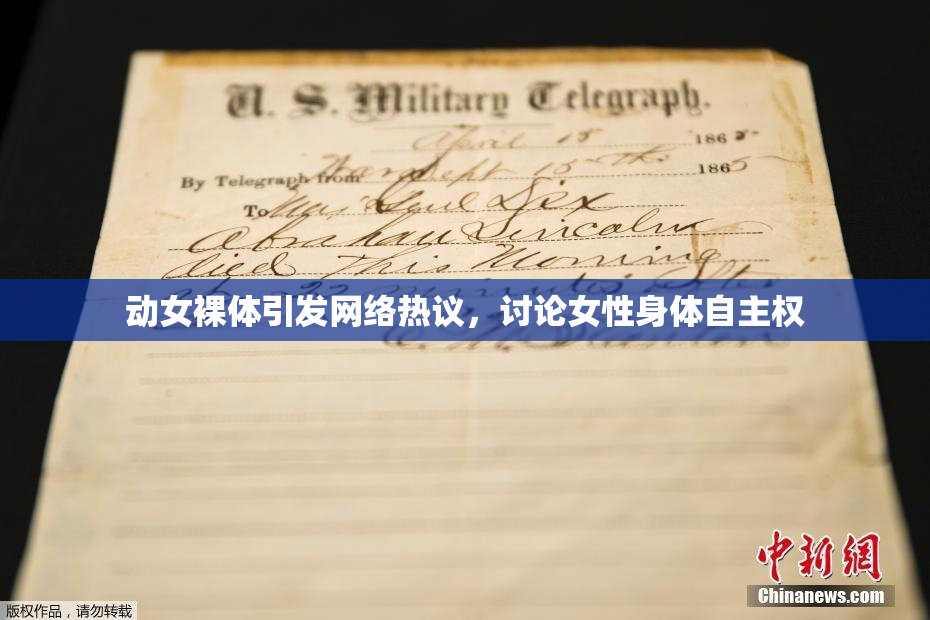 U. S. Military Telegraph.
April 15 1865
By Telegraph from War Dept 15th 1865
To Maj Genl Dix
Abraham Lincoln
died This Morning
at 22 minutes after
动女裸体引发网络热议，讨论女性身体自主权
E. M. Stanton
中新网
Chinanews.com
版权作品，请勿转载